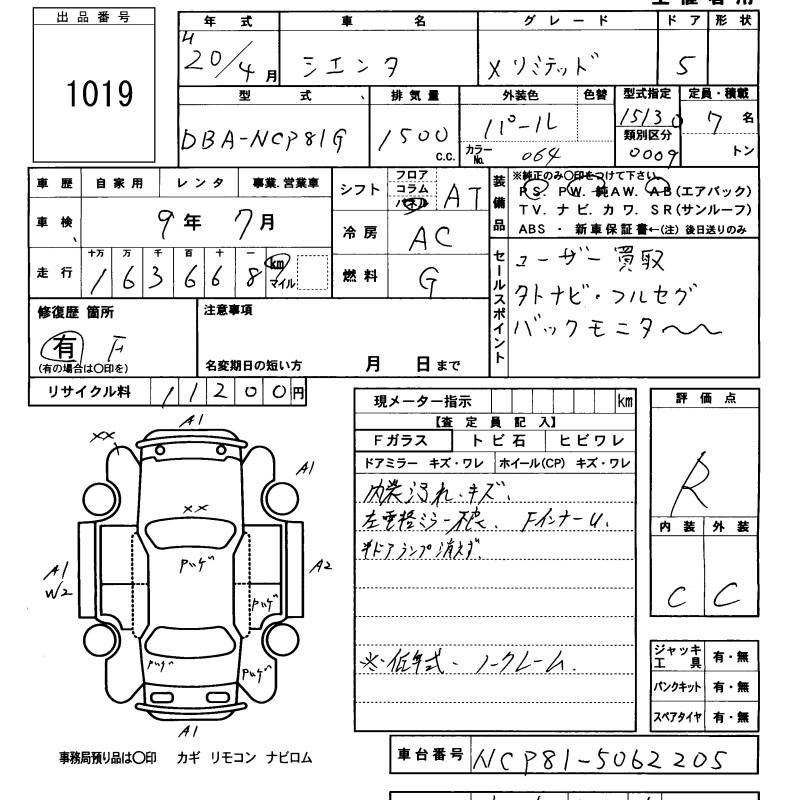 出品番号
1019
年式 車名 グレード ドア 形状
H 20/4月 シエンタ Xリミテッド 5
型式 排気量 外装色 色替 型式指定 定員・積載
DBA-NCP81G 1500 C.C. パール 15130 7名
カラーNo. 064 類別区分 0009 トン
車歴 自家用 レンタ 事業.営業車
車検 9年 7月
走行 十万 万 千 百 十 一
163668 km マイル
シフト フロア コラム パネル AT
冷房 AC
燃料 G
装備品
※純正のみ〇印をつけて下さい。
PS. PW. 純AW. AB(エアバック)
TV. ナビ. カワ. SR(サンルーフ)
ABS ・ 新車保証書←(注)後日送りのみ
セールスポイント
ユーザー買取
タトナビ・フルセグ
バックモニター〜〜
修復歴 箇所
有 F
(有の場合は〇印を)
注意事項
名変期日の短い方 月 日まで
リサイクル料 11200円
A1
XX
A1
XX
A1
W2
Pハゲ
A2
Pハゲ
Pハゲ
Pハゲ
A1
事務局預り品は〇印 カギ リモコン ナビロム
現メーター指示 km
【査定員記入】
Fガラス トビ石 ヒビワレ
ドアミラー キズ・ワレ ホイール(CP) キズ・ワレ
内装汚れ・キズ、
左電格ミラー不良、 FインナーU、
半ドアランプ消えず、
※低年式・ノークレーム、
評価点
R
内装 外装
C C
ジャッキ工具 有・無
パンクキット 有・無
スペアタイヤ 有・無
車台番号 NCP81-5062205